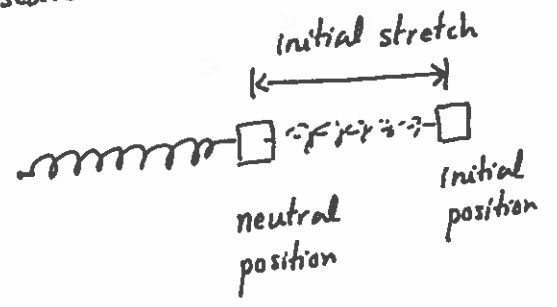 initial stretch
neutral
position
initial
position